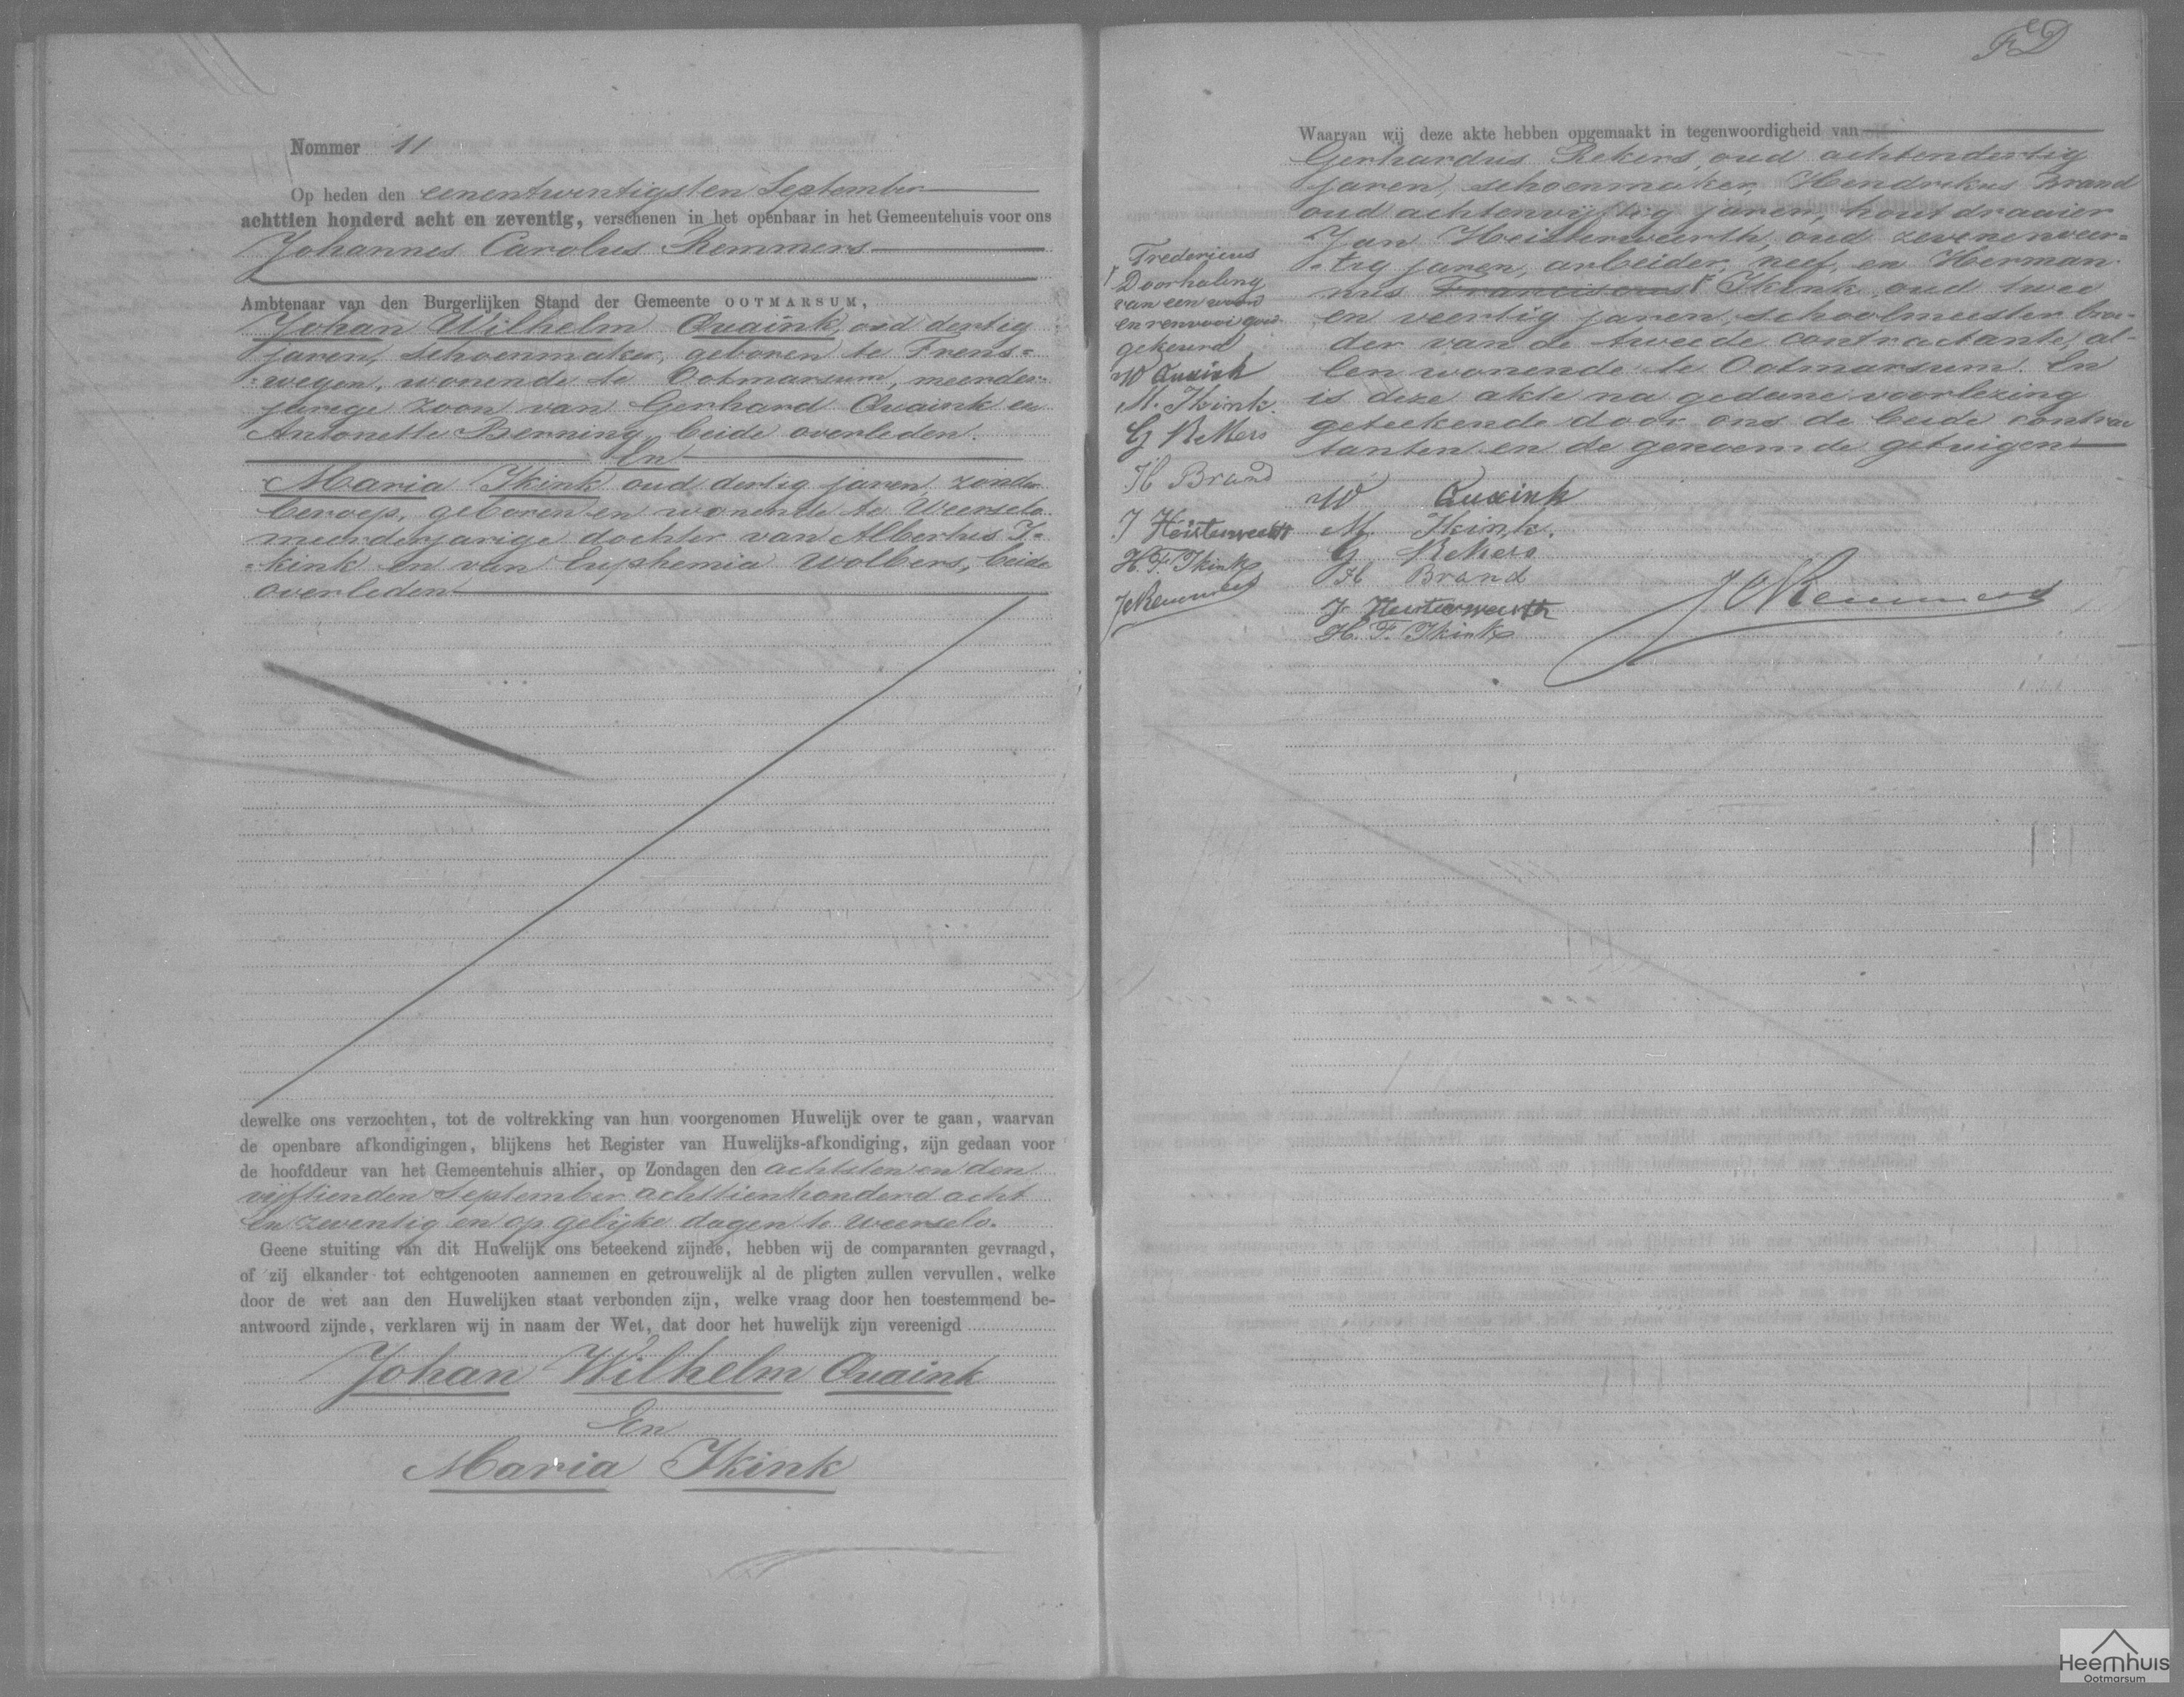 Nommer 11
Op heden den eenentwintigsten September
achttien honderd acht en zeventig, verschenen in het openbaar in het Gemeentehuis voor ons
Johannes Carolus Remmers
Ambtenaar van den Burgerlijken Stand der Gemeente OOTMARSUM,
Johan Wilhelm Quaink, oud dertig
jaren, schoenmaker, geboren te Frens=
=wegen, wonende te Ootmarsum, meerder=
jarige zoon van Gerhard Quaink en
Antonette Berning, beide overleden.
En
Maria Ikink oud dertig jaren, zonder
beroep, geboren en wonende te Weerselo
meerderjarige dochter van Albertus I=
=kink en van Euphemia Wolbers, beide
overleden
dewelke ons verzochten, tot de voltrekking van hun voorgenomen Huwelijk over te gaan, waarvan
de openbare afkondigingen, blijkens het Register van Huwelijks-afkondiging, zijn gedaan voor
de hoofddeur van het Gemeentehuis alhier, op Zondagen den achtsten en den
vijftienden September achttienhonderd acht
en zeventig en op gelijke dagen te Weerselo.
Geene stuiting van dit Huwelijk ons beteekend zijnde, hebben wij de comparanten gevraagd,
of zij elkander tot echtgenooten aannemen en getrouwelijk al de pligten zullen vervullen, welke
door de wet aan den Huwelijken staat verbonden zijn, welke vraag door hen toestemmend be-
antwoord zijnde, verklaren wij in naam der Wet, dat door het huwelijk zijn vereenigd
Johan Wilhelm Quaink
En
Maria Ikink
Waarvan wij deze akte hebben opgemaakt in tegenwoordigheid van
Gerhardus Rekers, oud achtendertig
jaren, schoenmaker, Hendrikus Brand
oud achtenvijftig jaren, houtdraaier
Jan Heisterweerth, oud zevenenveer=
=tig jaren, arbeider, neef, en Herman
nus Franciscus Ikink, oud twee
en veertig jaren, schoolmeester broe-
der van de tweede contractante, al-
len wonende te Ootmarsum. En
is deze akte na gedane voorlezing
geteekende door ons de beide contrac
tanten en de genoemde getuigen
W Quaink
M. Ikink.
G Rekers
H Brand
J Heisterweerth
H. F. Ikink
JC Remmers
Fredericus
Doorhaling
van een woord
en renvooi goed
gekeurd
W Quaink
M. Ikink.
G Rekers
H Brand
J Heisterweerth
H. F. Ikink
JC Remmers
Heemhuis
Ootmarsum